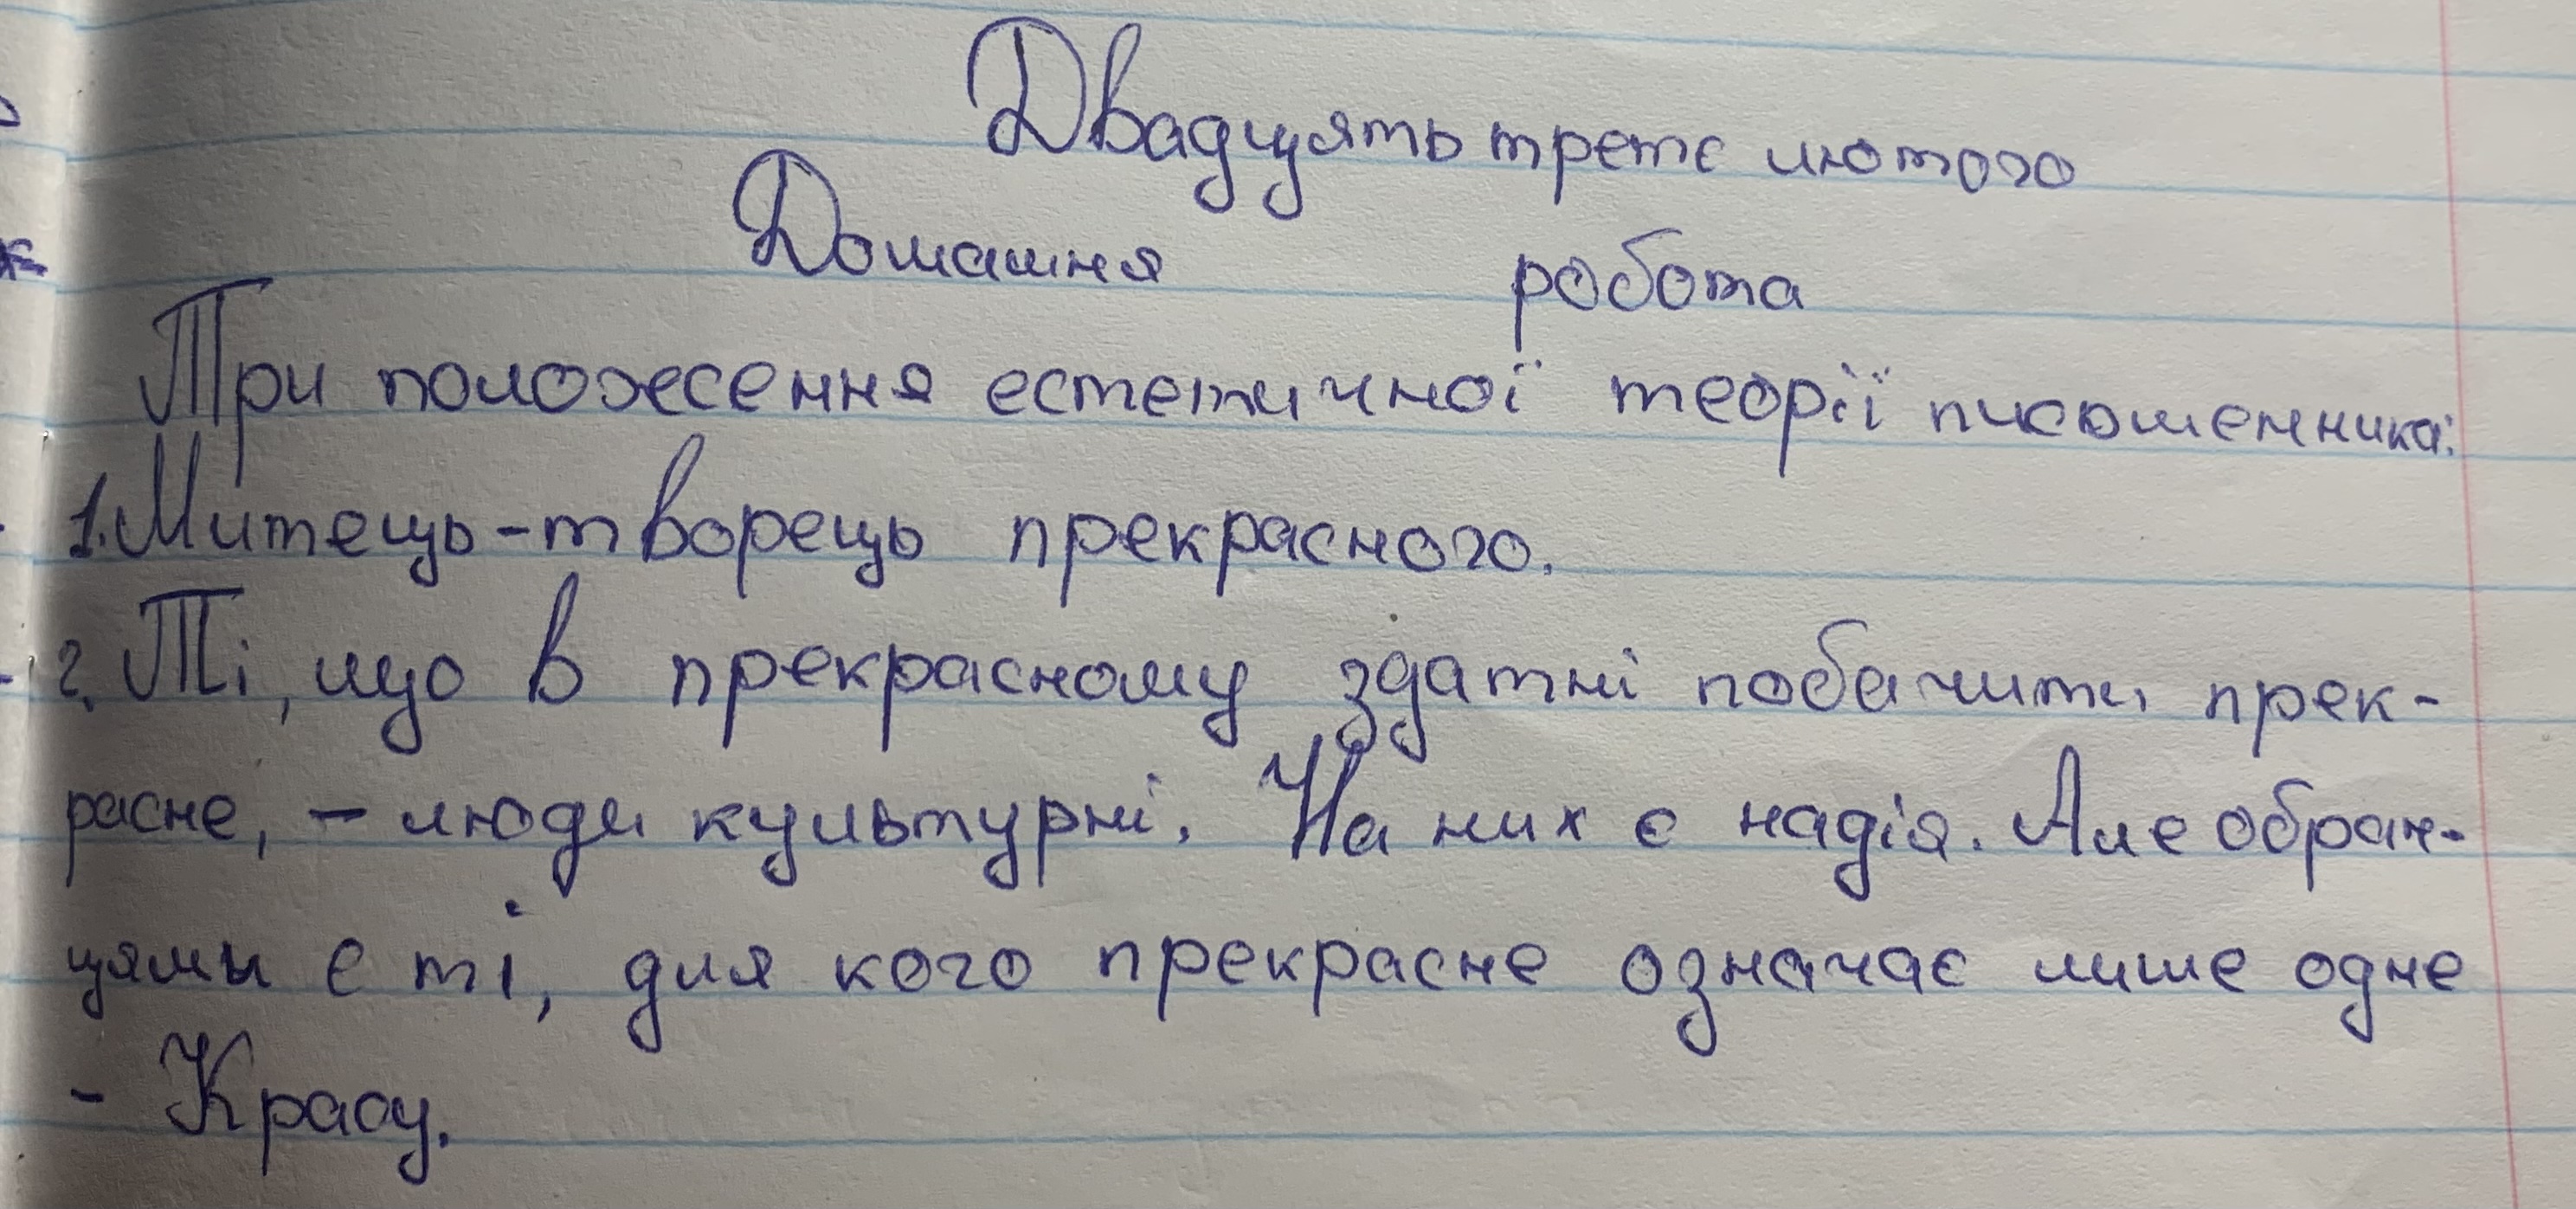 Двадцять третє лютого
Домашня робота
Три положення естетичної теорії письменника:
1. Митець - творець прекрасного.
2. Ті, що в прекрасному здатні побачити прек-
расне, - люди культурні. На них є надія. Але обран-
цями є ті, для кого прекрасне означає лише одне
- Красу.